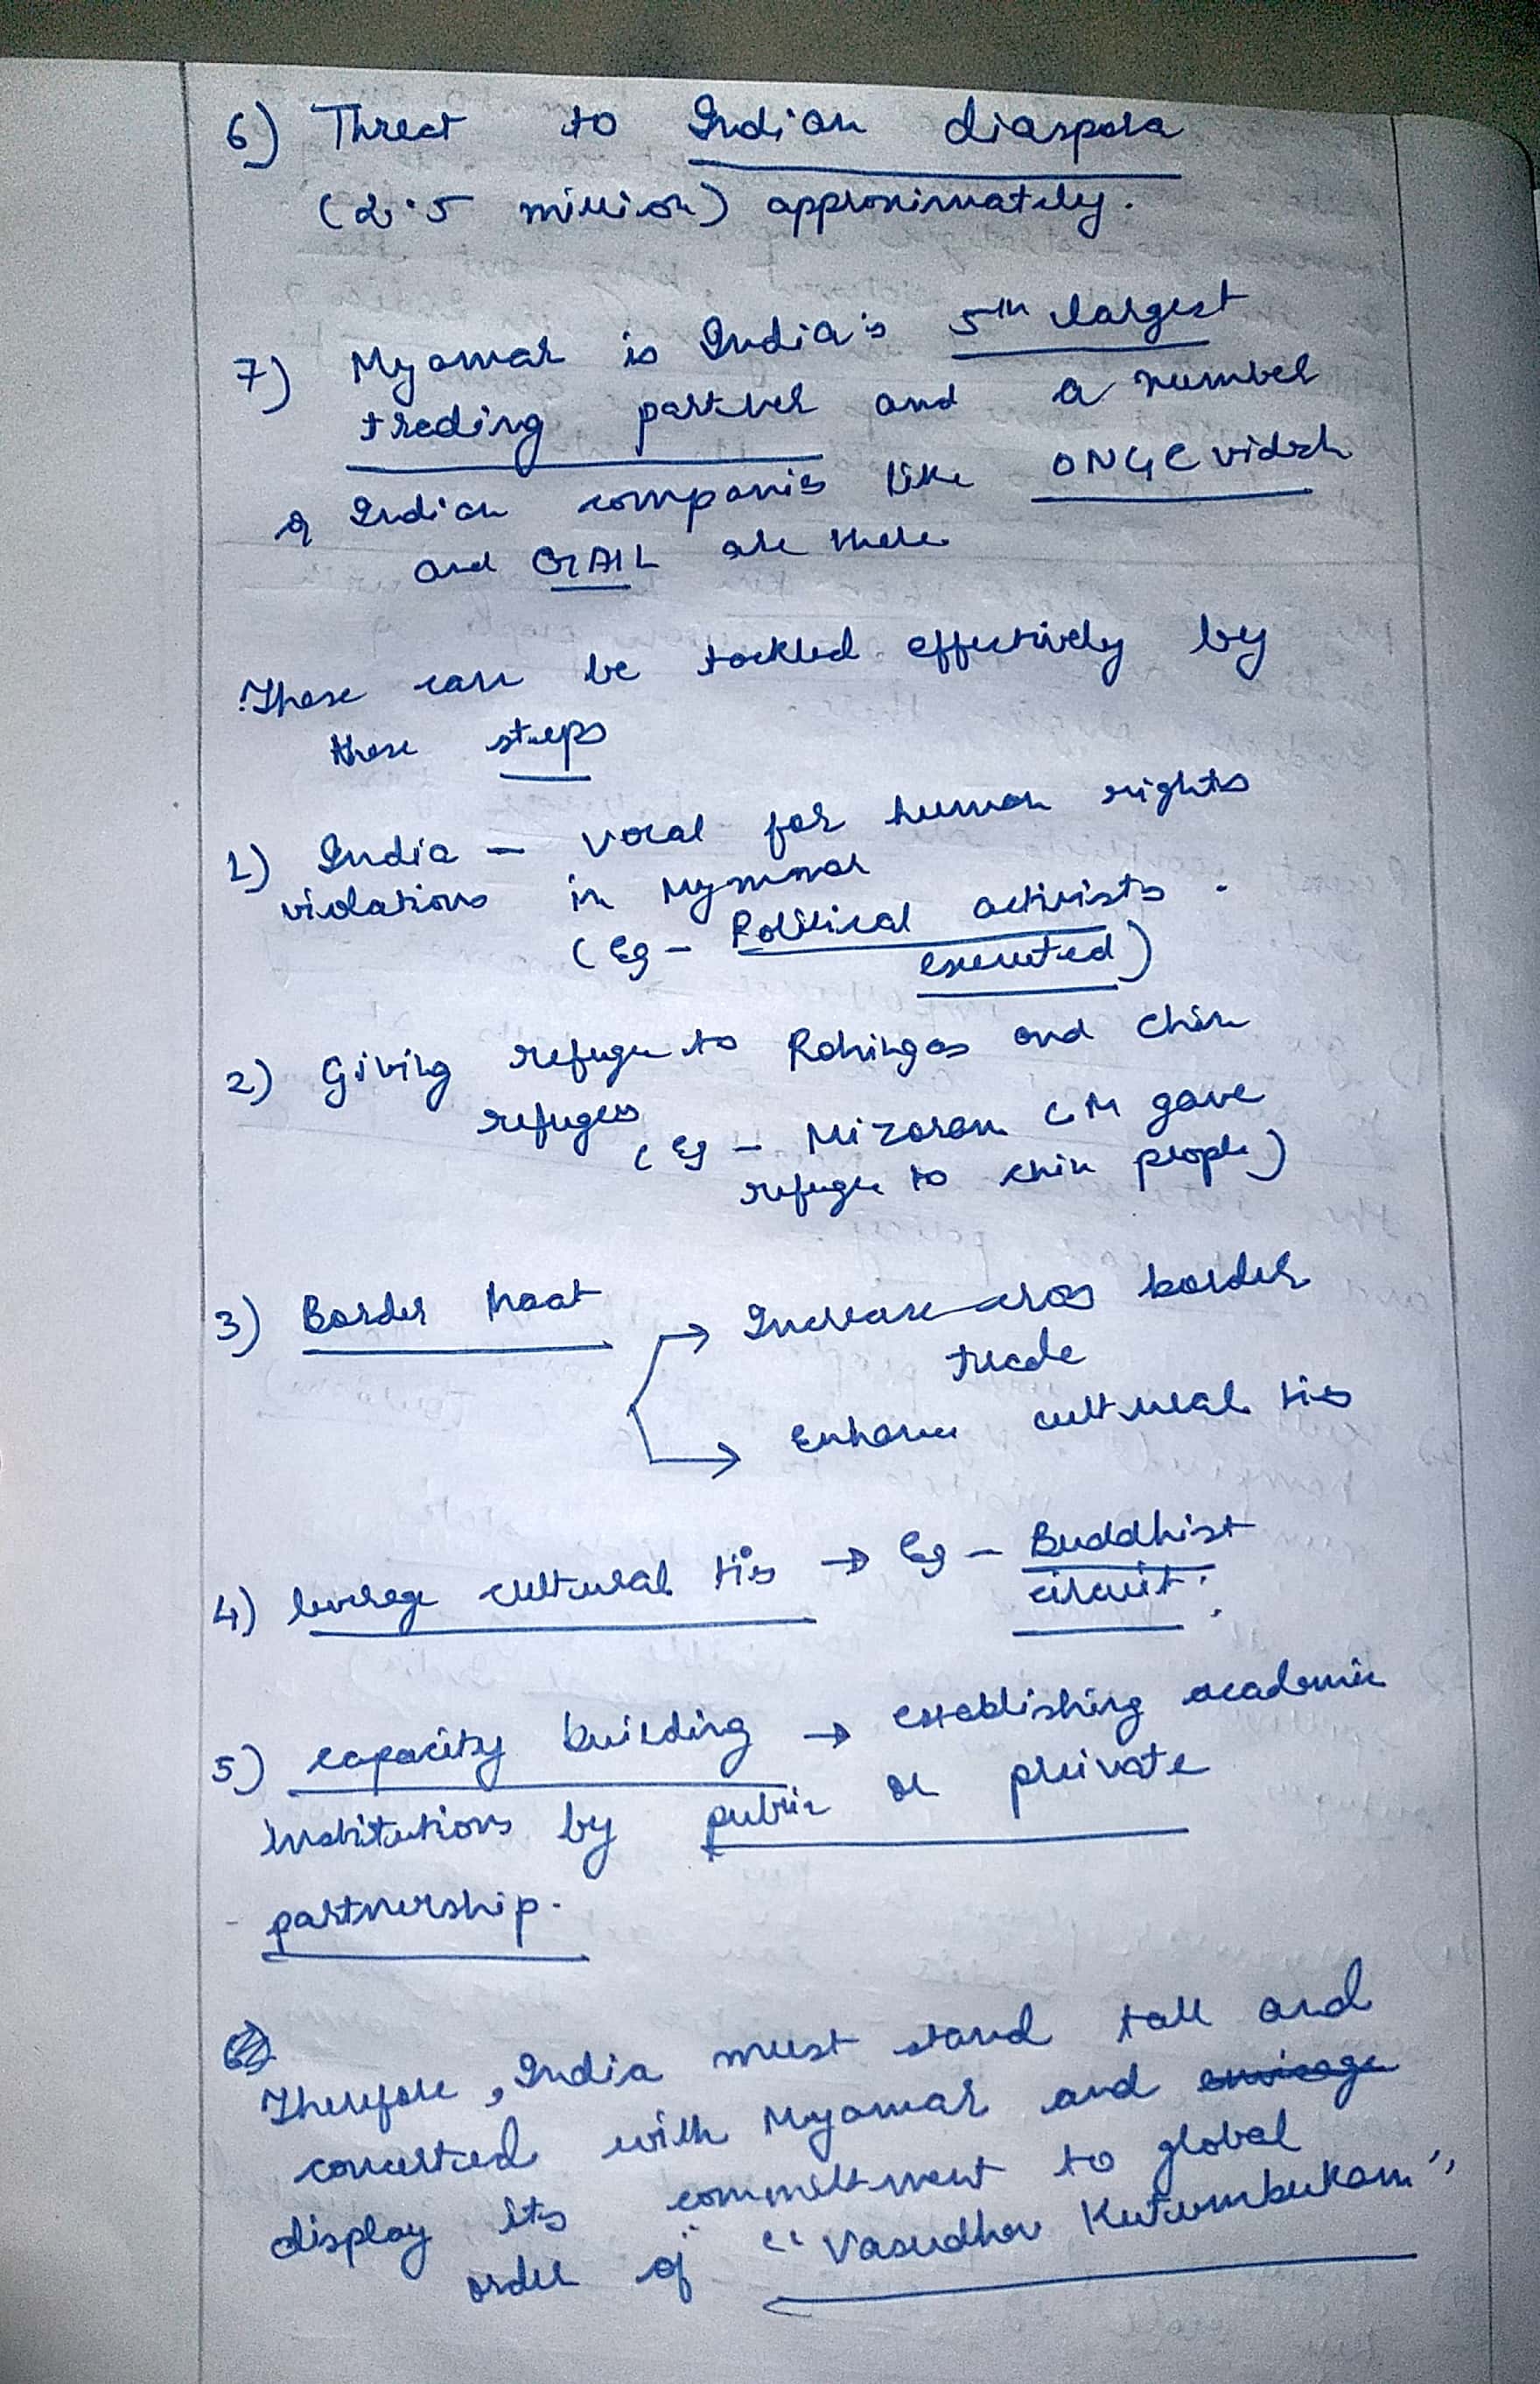 6) Threat to Indian diaspora
(2.5 million) approximately.
7) Myanmar is India's 5th largest
treding partner and a number
of Indian companies like ONGC videsh
and GAIL are there
These can be tackled effectively by
these steps
1) India - vocal for human rights
violations in Myanmar
(Eg - Political activists
executed)
2) Giving refuge to Rohingas and Chin
refugees
(Eg - Mizoram CM gave
refuge to chin people)
3) Border haat → Increase cross border
trade
→ Enhance cultural ties
4) leverage cultural ties → Eg - Buddhist
circuit.
5) capacity building → establishing academic
institutions by public or private
partnership.
Therefore, India must stand tall and
concerted with Myanmar and envisage
display its commitment to global
order of "Vasudhav Kutumbukam"